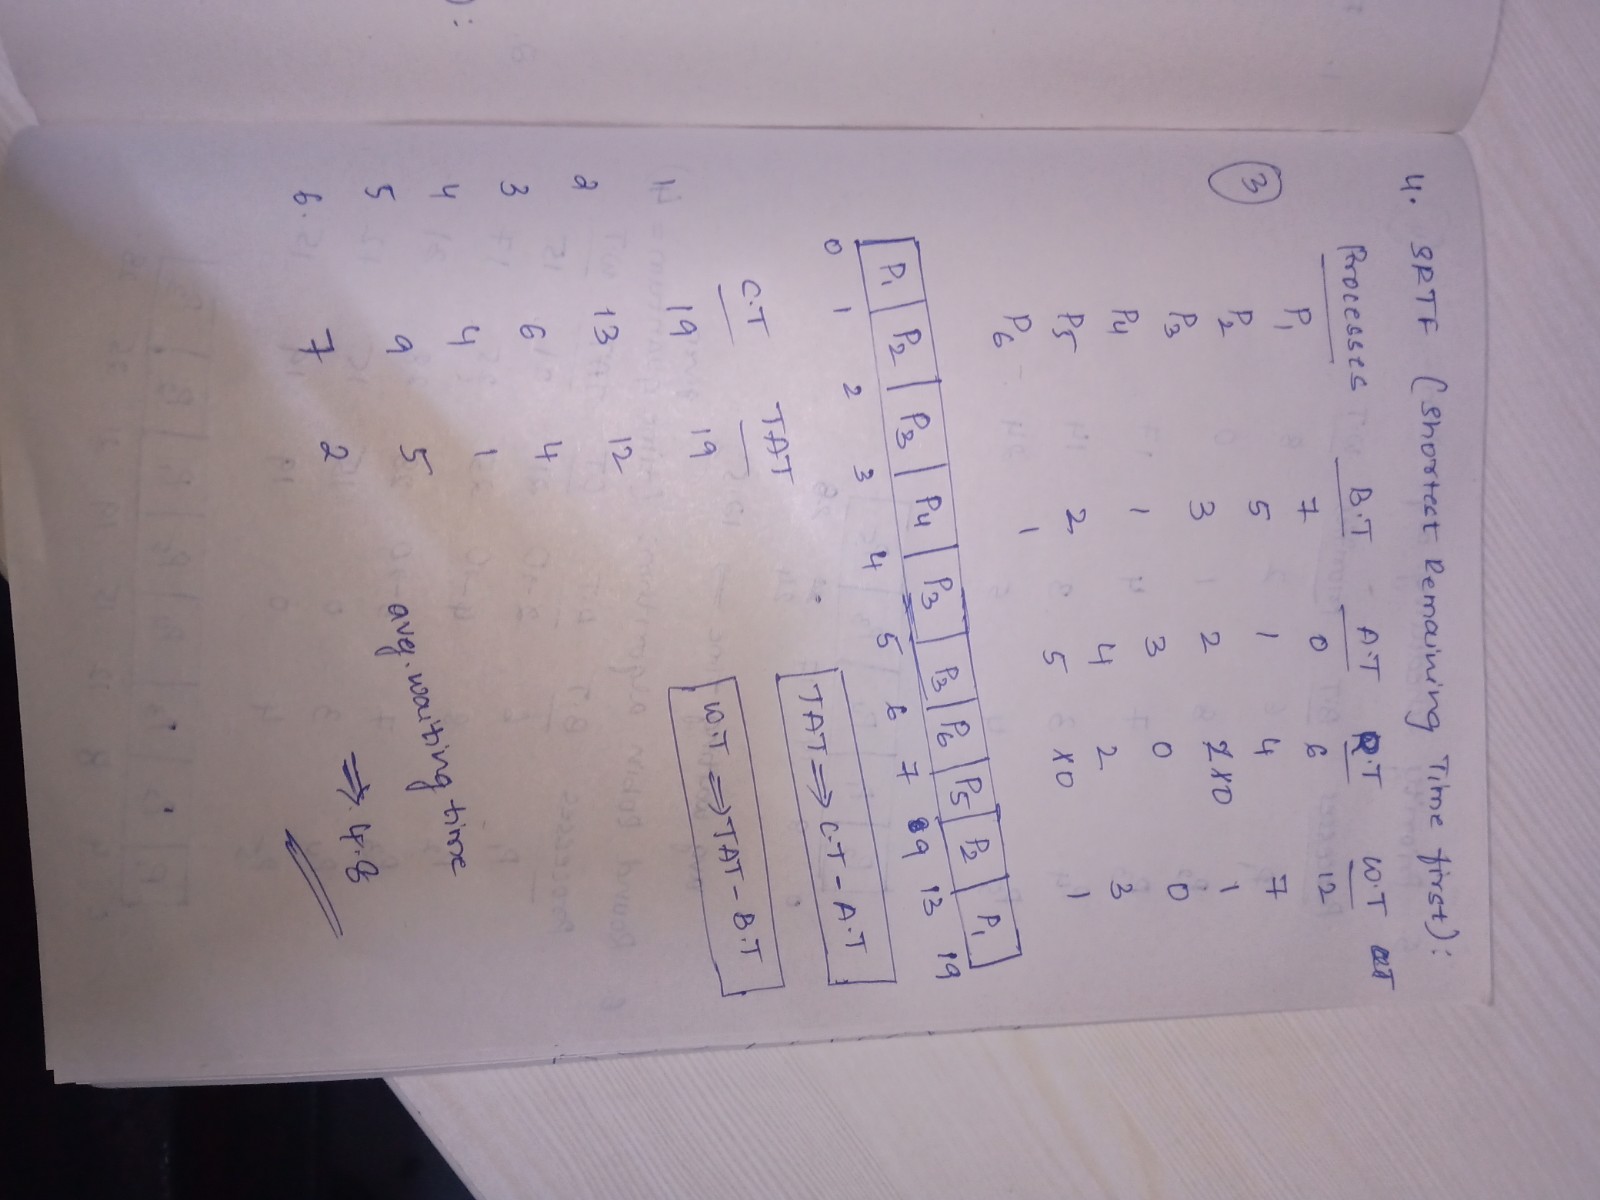 4. SRTF (Shortest Remaining Time first):
Processes B.T A.T R.T W.T
3
P1 7 0 6 12
P2 5 1 4 7
P3 3 2 1 0 1
P4 1 3 0 0
P5 2 4 2 3
P6 1 5 1 0 1
P1 P2 P3 P4 P3 P3 P6 P5 P2 P1
0 1 2 3 4 5 6 7 9 13 19
TAT ⇒ C.T - A.T
C.T TAT
W.T ⇒ TAT - B.T
1 19 19
2 13 12
3 6 4
4 4 1
5 9 5
6. 7 2
avg. waiting time
⇒ 4.8